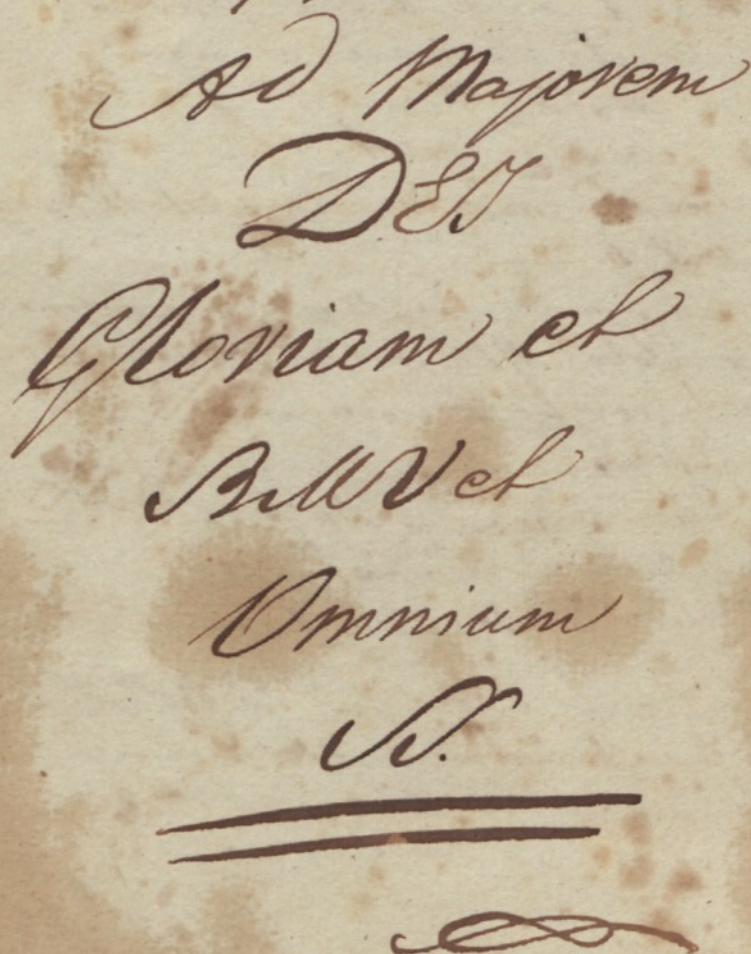 Ad Majorem
DEI
Gloriam et
BMV et
Omnium
SS.